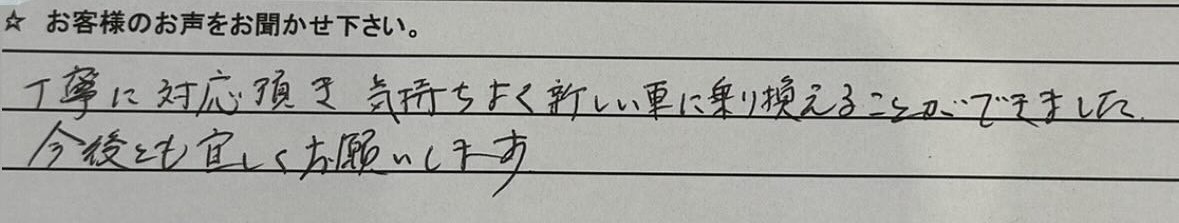 ☆ お客様のお声をお聞かせ下さい。
丁寧に対応頂き 気持ちよく新しい車に乗り換えることができました.
今後とも宜しくお願いします